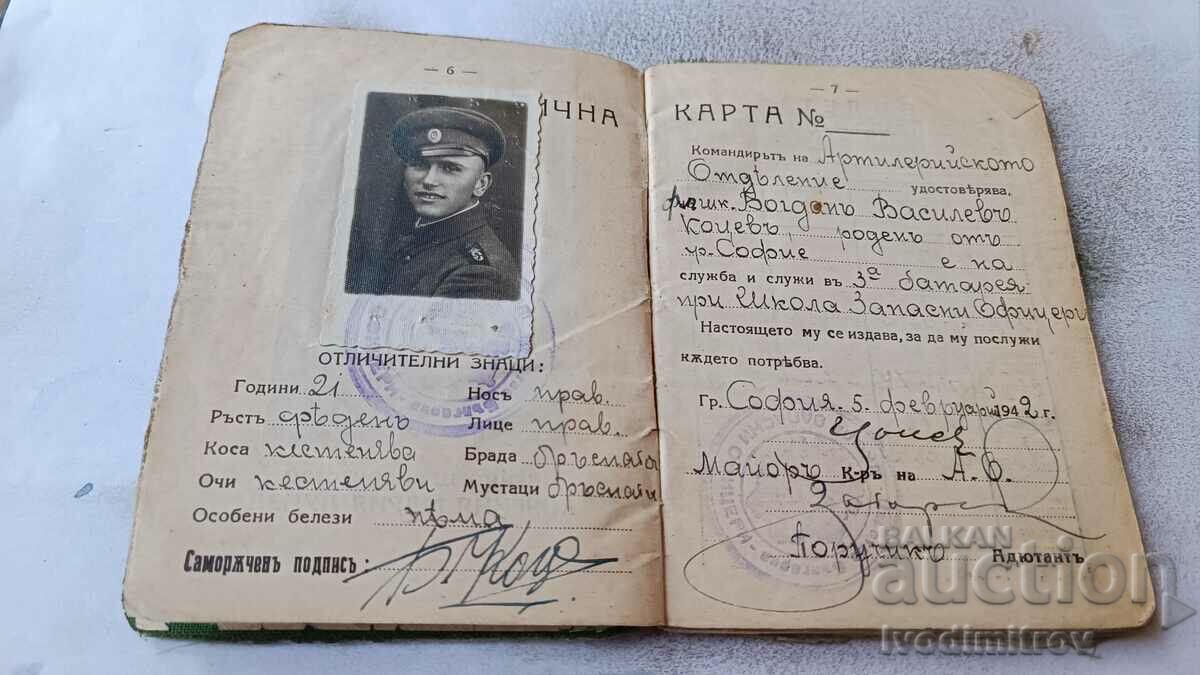 — 6 —
ИЧНА
ОТЛИЧИТЕЛНИ ЗНАЦИ:
Години 21 Носъ прав.
Ръстъ срѣденъ Лице прав.
Коса кестенява Брада бръсната
Очи кестеняви Мустаци бръснати
Особени белези нѣма
Саморѫченъ подписъ:
— 7 —
КАРТА №
Командирътъ на Артилерийското
Отдѣление удостовѣрява,
Богданъ Василевъ
Коцевъ, роденъ отъ
гр. Софие е на
служба и служи въ 3ª батарея
при Школа Запасни Офицери
Настоящето му се издава, за да му послужи
кѫдето потрѣбва.
Гр. София. 5. февруарий 1942 г.
Майоръ К-ръ на А. О.
Поручикъ Адютантъ
BALKAN
auction
ivodimitrov